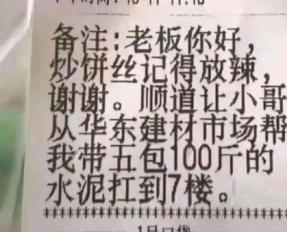 备注:老板你好,
炒饼丝记得放辣,
谢谢。顺道让小哥
从华东建材市场帮
我带五包100斤的
水泥扛到7楼。
********************************